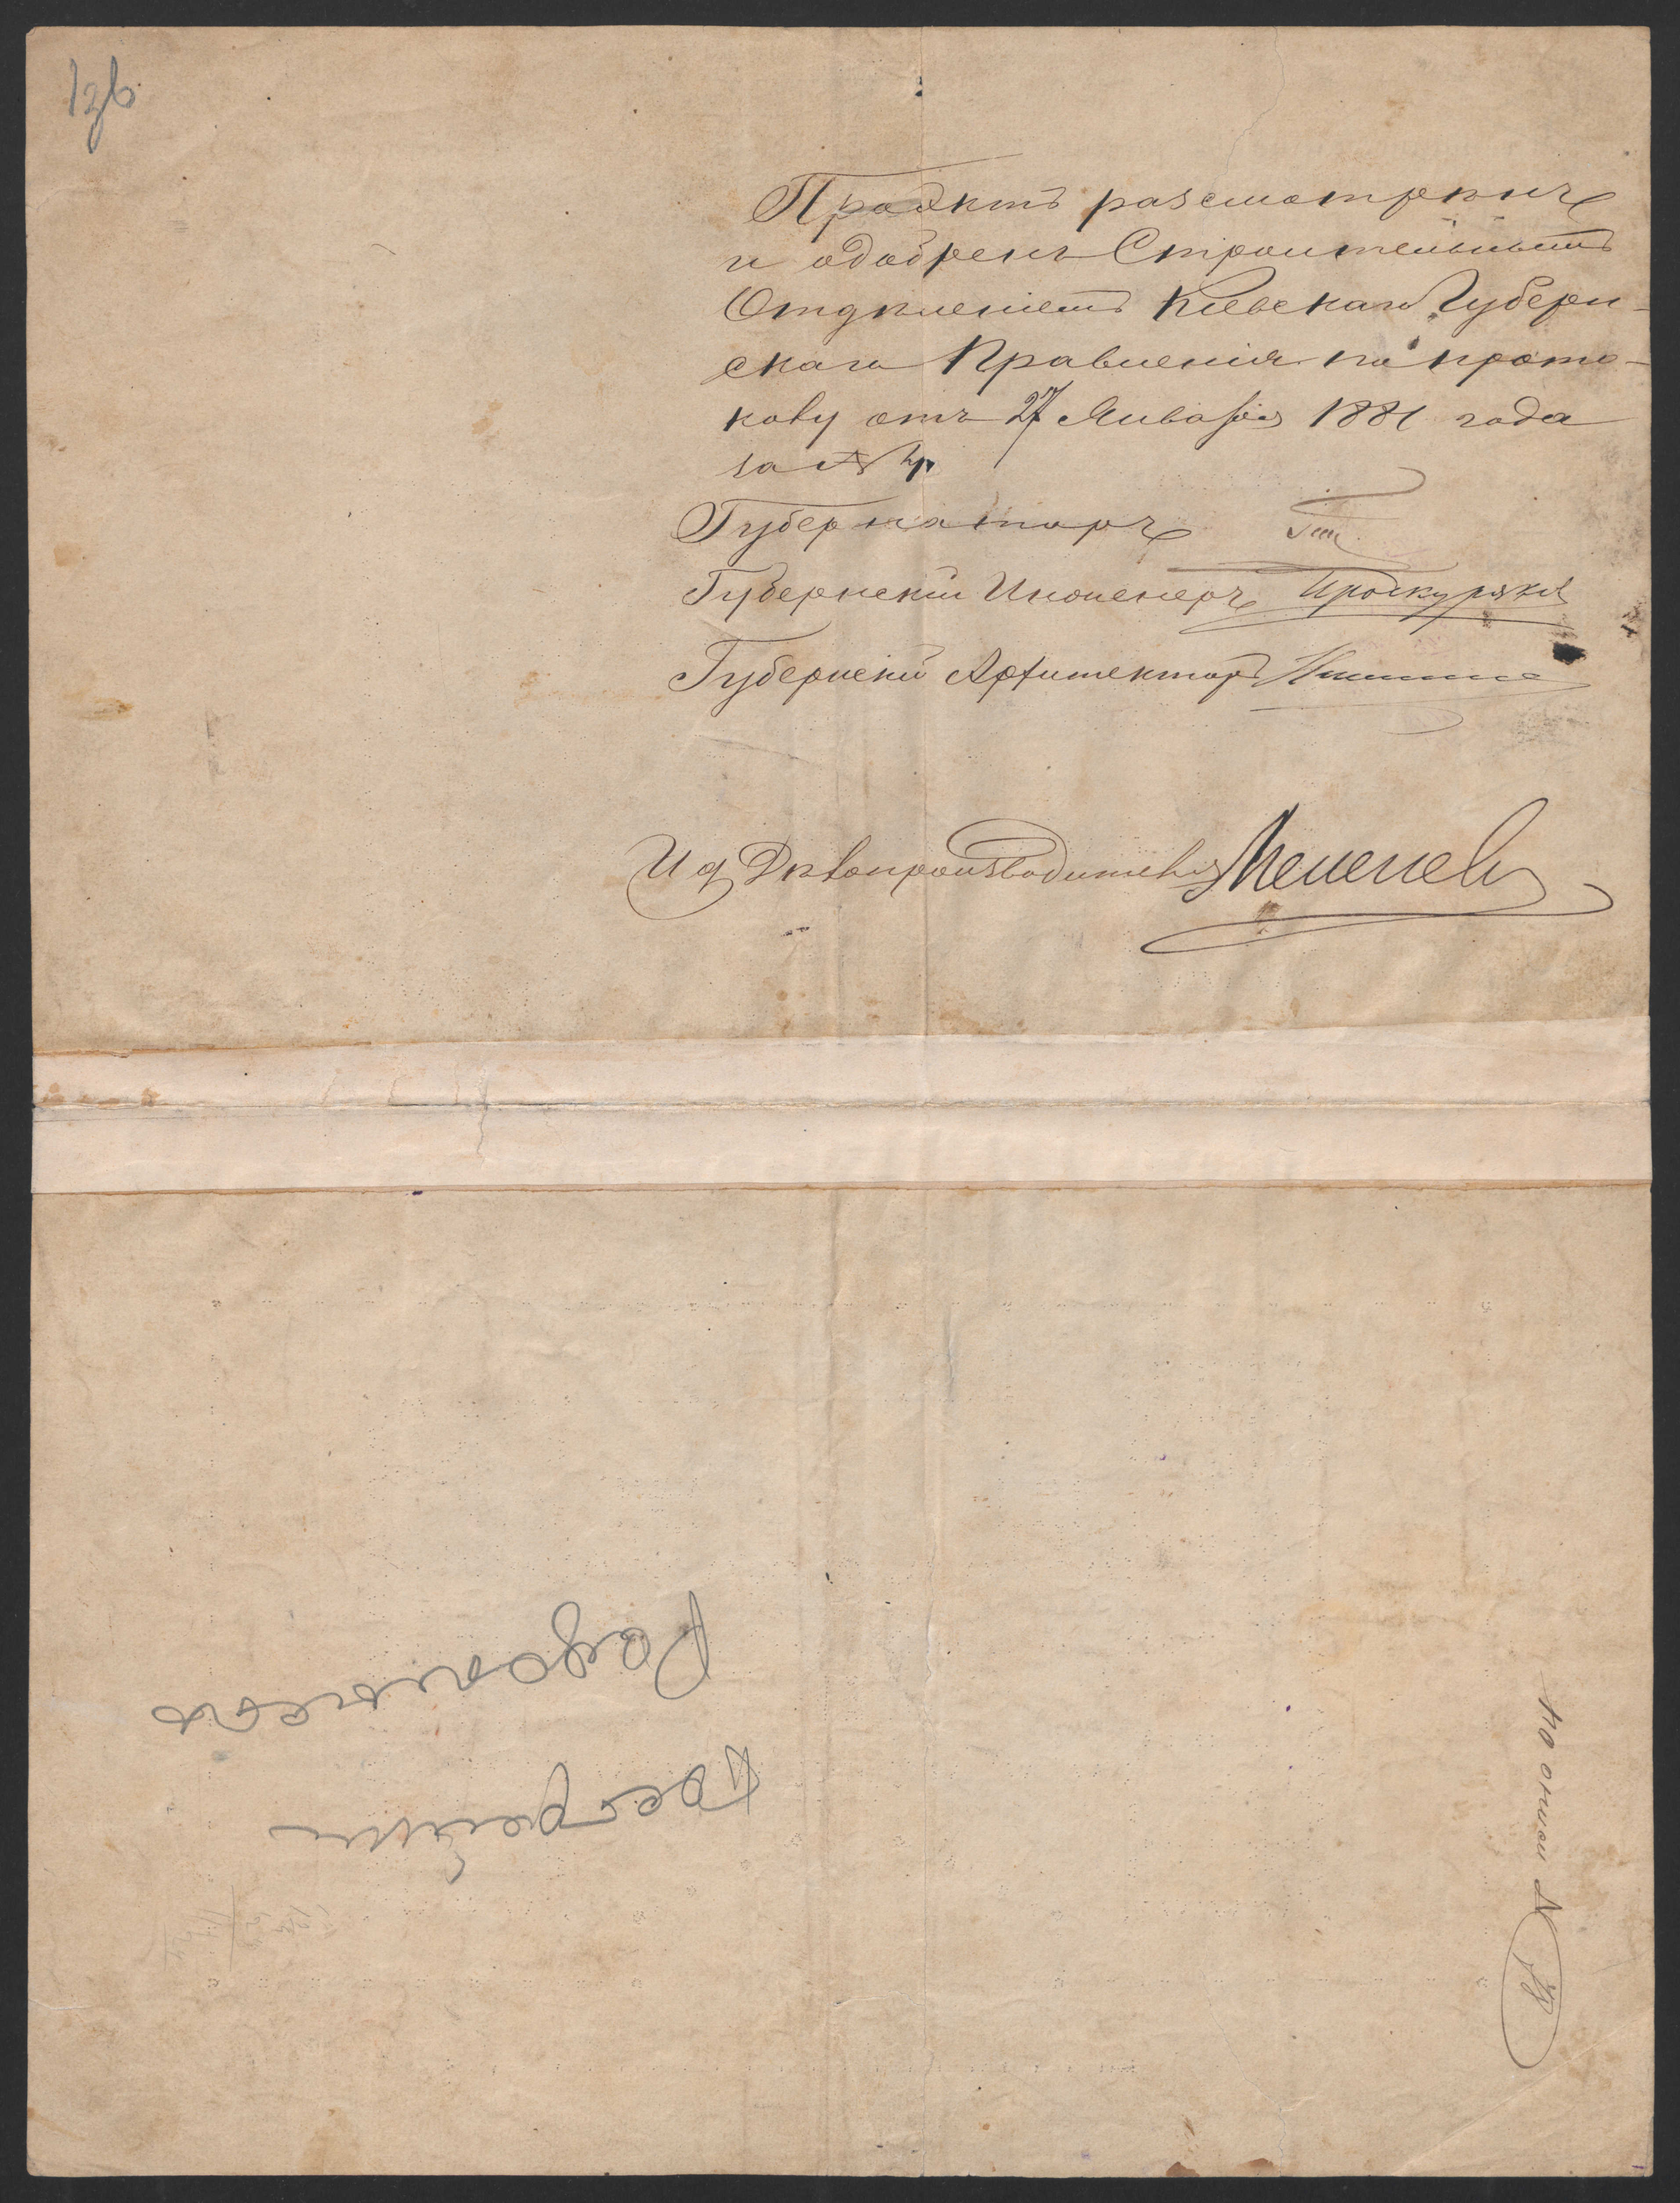 Проэктъ разсмотрѣнъ
и одобренъ Строительнымъ
Отдѣленіемъ Кіевскаго Губерн-
скаго Правленія по прото-
колу отъ 27 Января 1881 года
за №
Губернаторъ
Губернскій Инженеръ Проскуряков
Губернскій Архитекторъ
И д Дѣлопроизводителя
По описи №
Постройки